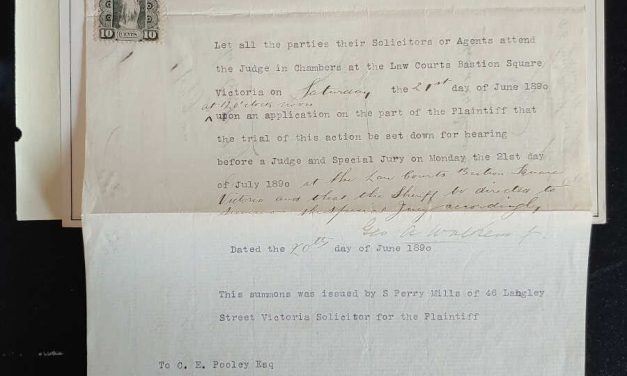 10 CENTS 10
Let all the parties their Solicitors or Agents attend
the Judge in Chambers at the Law Courts Bastion Square
Victoria on Saturday the 21st day of June 1890
at 12 o'clock noon
upon an application on the part of the Plaintiff that
the trial of this action be set down for hearing
before a Judge and Special Jury on Monday the 21st day
of July 1890 at the Law Courts Bastion Square
Victoria and that the Sheriff be directed to
summon the special Jury accordingly
Geo A Walkem J.
Dated the 20th day of June 1890
This summons was issued by S Perry Mills of 46 Langley
Street Victoria Solicitor for the Plaintiff
To C. E. Pooley Esq